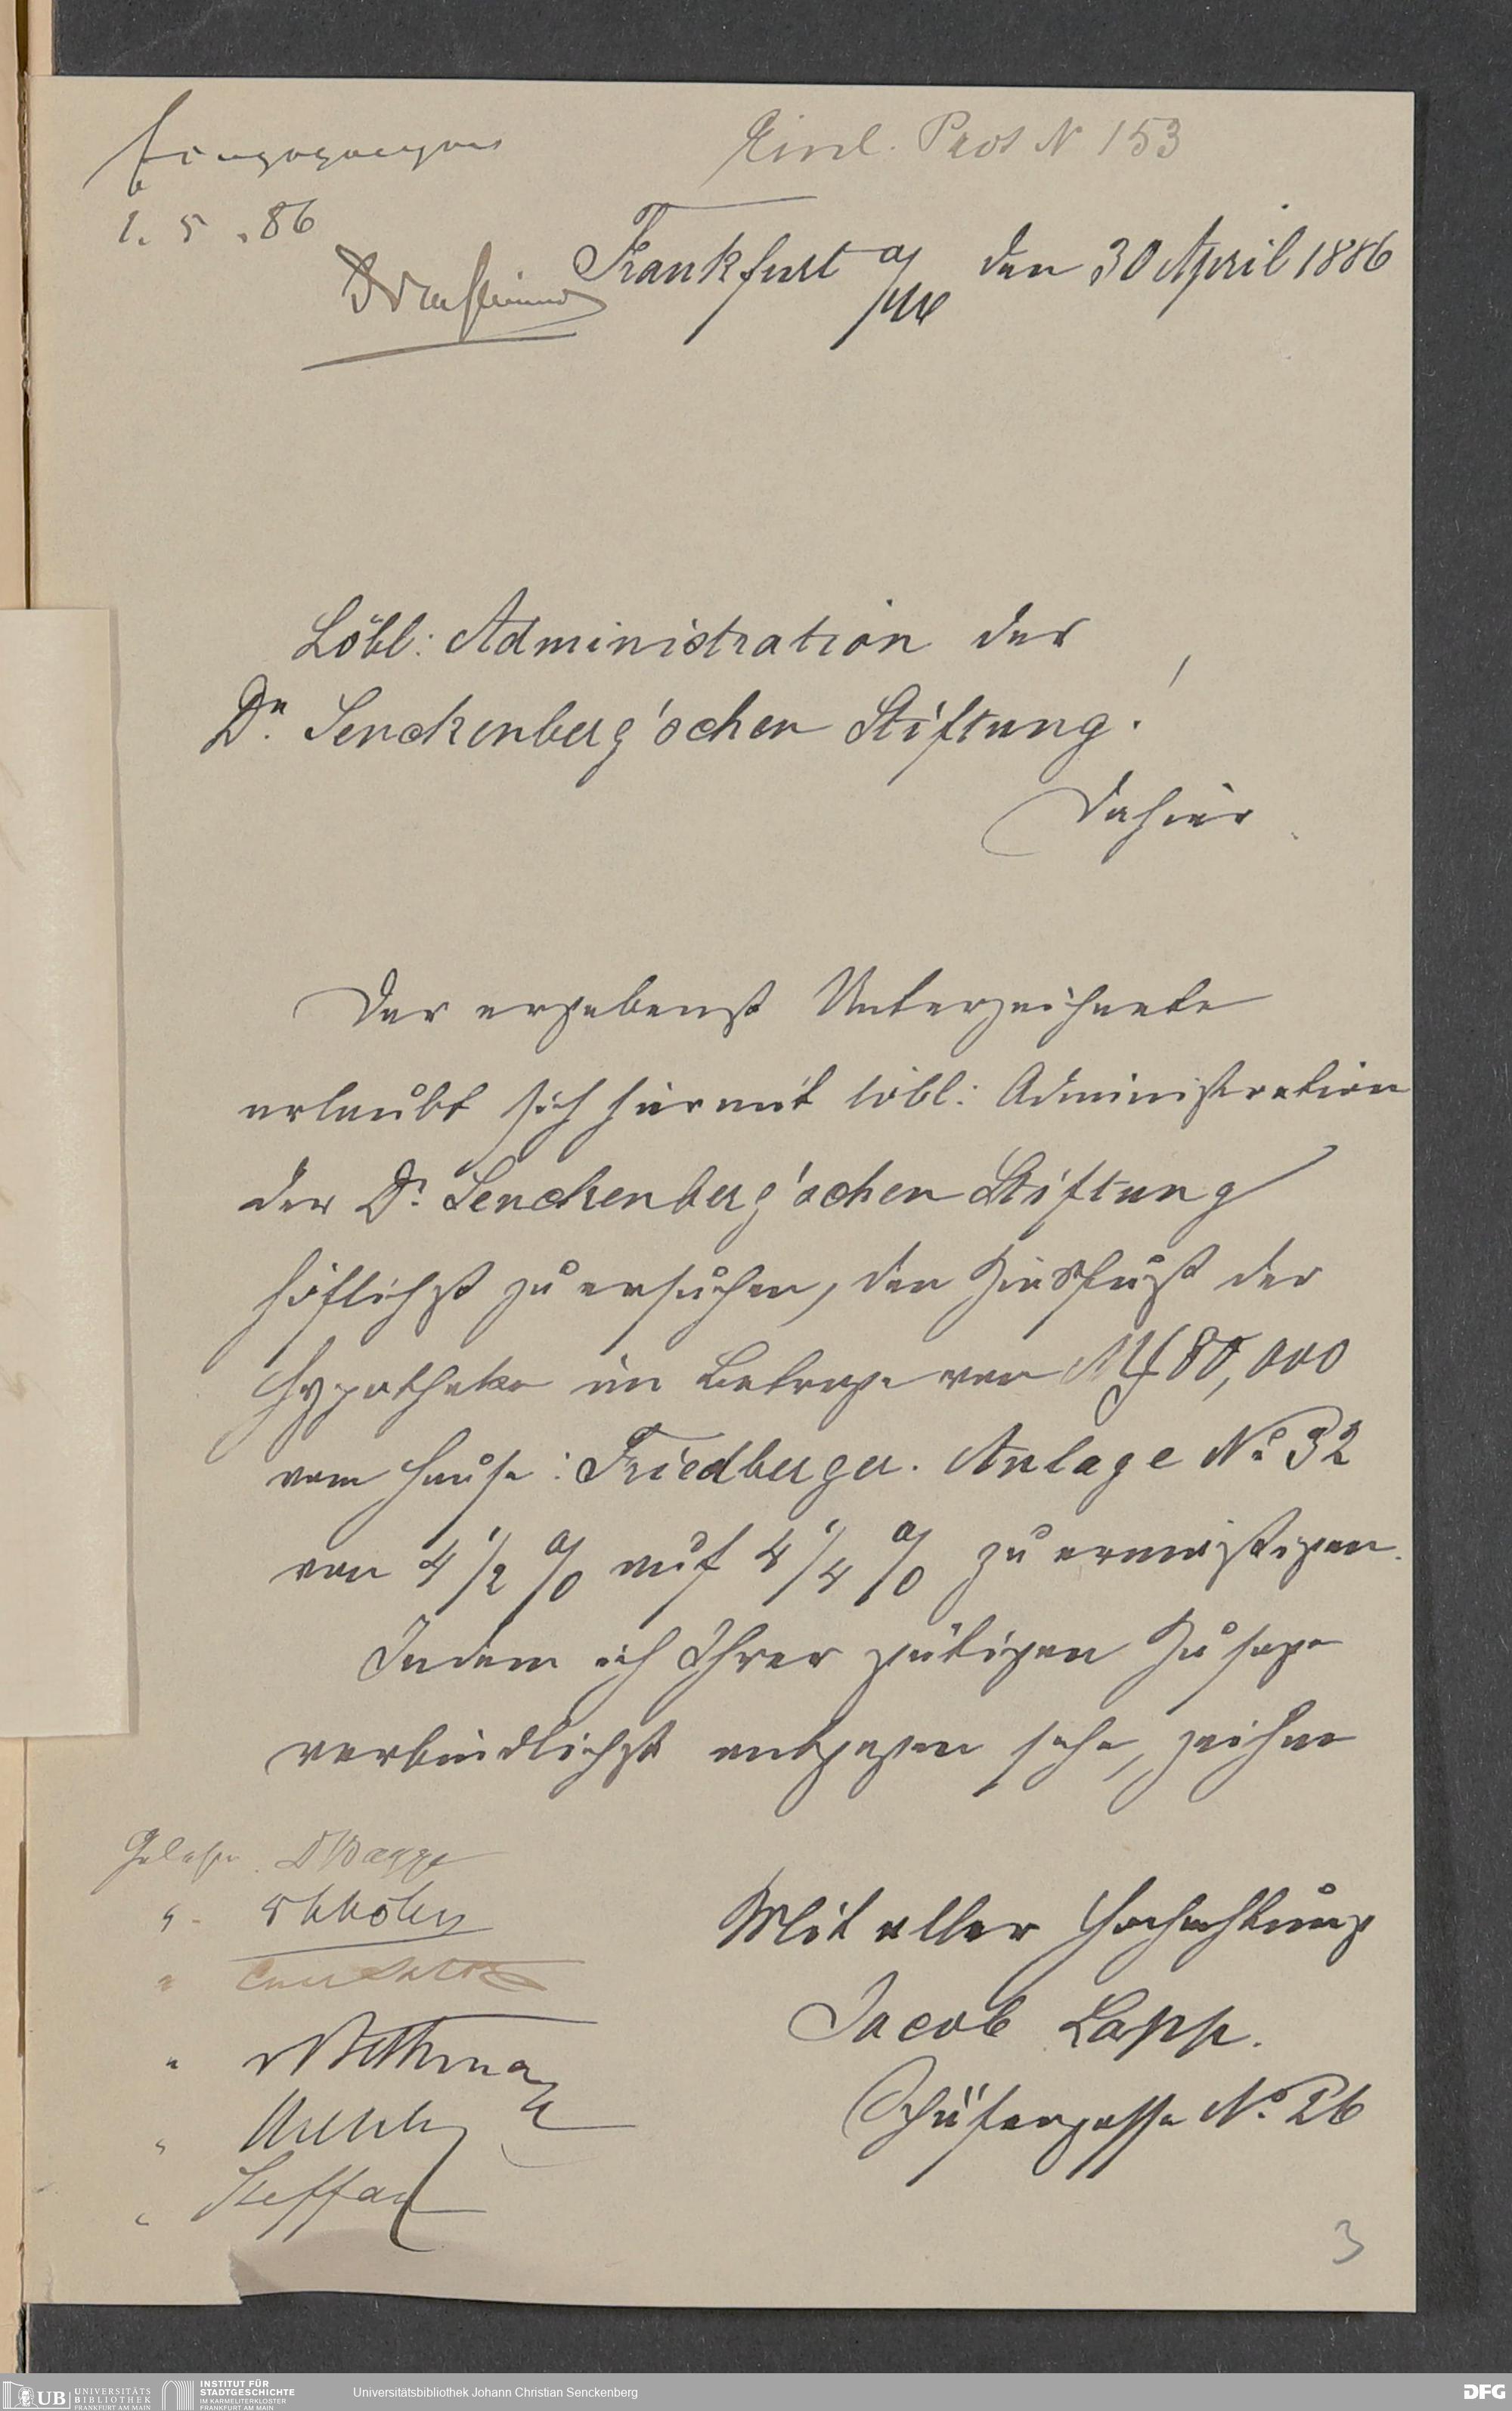 Eingegangen
Einl. Prot N 153
1. 5. 86
Frankfurt a/M den 30 April 1886
Löbl: Administration der
Dr. Senckenberg'schen Stiftung!
Dahier
Der ergebenst Unterzeichnete
erlaubt sich hiermit löbl: Administration
der Dr. Senckenberg'schen Stiftung
höflichst zu ersuchen, den Zinsfuß der
Hypotheke im Betrage von Mk 80,000
vom Hause: Friedberger. Anlage No 32
von 4 1/2 % auf 4 1/4 % zu ermäßigen.
Indem ich Ihrer gütigen Zusage
verbindlichst entgegen sehe, zeichne
Mit aller Hochachtung
Jacob Lapp.
Schäfergasse No. 26
Gelesen
"
"
" Bethmann
"
" Steffan
3
UB UNIVERSITÄTS
BIBLIOTHEK
FRANKFURT AM MAIN
INSTITUT FÜR
STADTGESCHICHTE
IM KARMELITERKLOSTER
FRANKFURT AM MAIN
Universitätsbibliothek Johann Christian Senckenberg
DFG